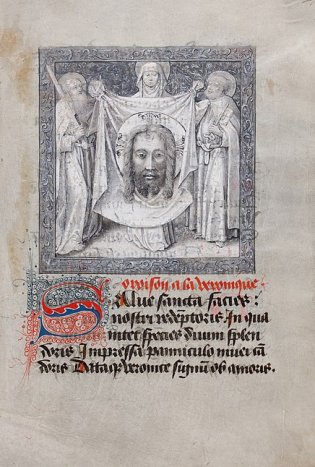 Orroison a la veronique
Salue sancta facies:
nostri redeptoris In qua
nitet species diuini splen
doris Impressa panniculo niuei cā
doris Dataqȝ veronice signū ob amoris.